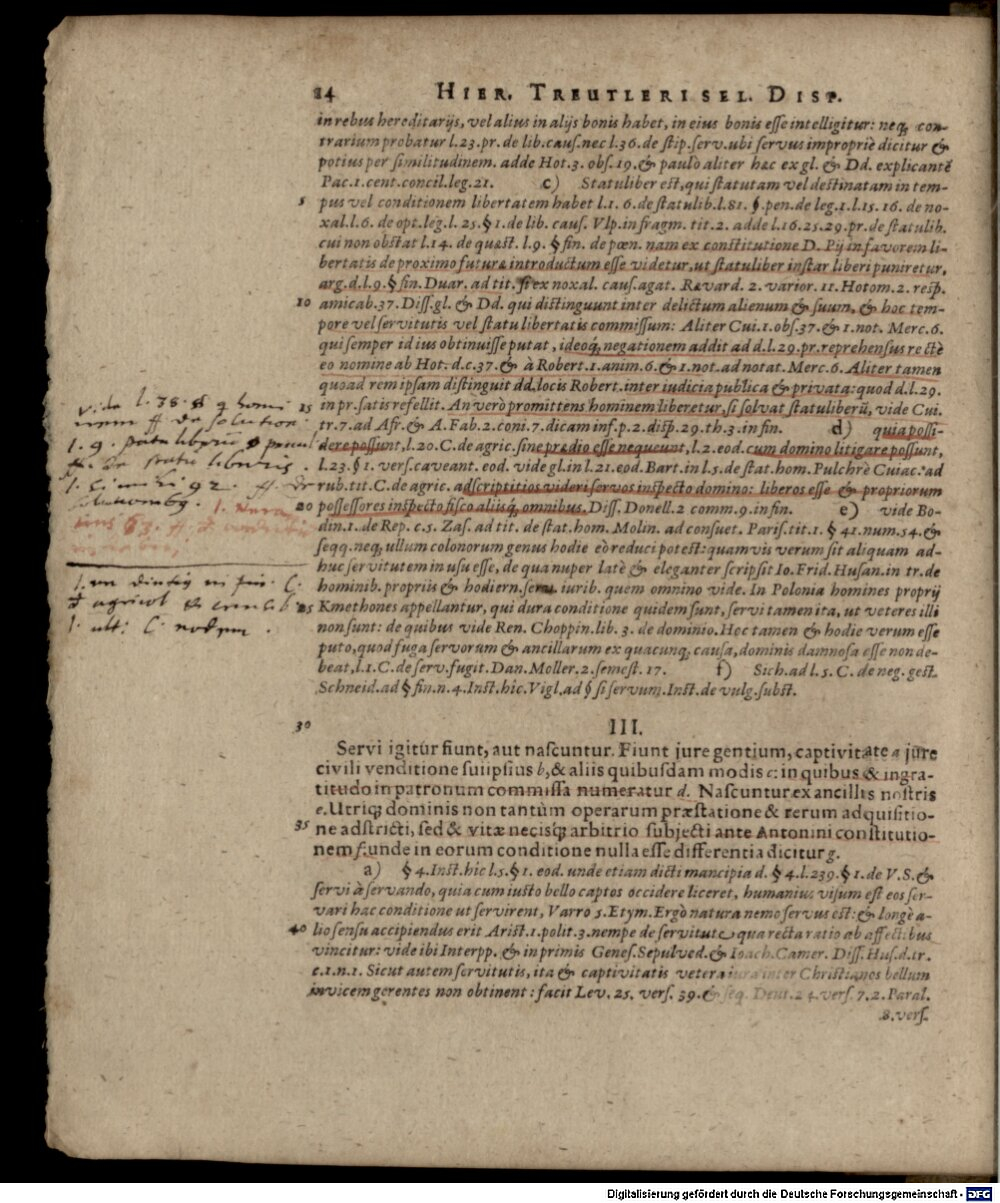 14 HIER. TREUTLERI SEL. DISP.
in rebus hereditarijs, vel alius in alijs bonis habet, in eius bonis esse intelligitur: neq; con-
trarium probatur l.23.pr. de lib. caus. nec l.36. de stip. serv. ubi servus impropriè dicitur &
potius per similitudinem. adde Hot.3. obs.19. & paulò aliter hæc ex gl. & Dd. explicantē
Pac.1.cent.concil.leg.21. c) Statuliber est, qui statutam vel destinatam in tem-
5 pus vel conditionem libertatem habet l.1.6. de statulib. l.81. §.pen. de leg.1.l.15.16. de no-
xal. l.6. de opt. leg. l.25. §1. de lib. caus. Vlp. in fragm. tit.2. adde l.16.25.29.pr. de statulib.
cui non obstat l.14. de quæst. l.9. § fin. de pœn. nam ex constitutione D. Pij in favorem li-
bertatis de proximo futuræ introductum esse videtur, ut statuliber instar liberi puniretur,
arg. d.l.9. § fin. Duar. ad tit. si ex noxal. caus. agat. Rævard. 2. varior. 11. Hotom. 2. resp.
10 amicab.37. Diss. gl. & Dd. qui distinguunt inter delictum alienum & suum, & hoc tem-
pore vel servitutis vel statu libertatis commissum: Aliter Cui.1.obs.37. & 1.not. Merc.6.
qui semper id ius obtinuisse putat, ideoq; negationem addit ad d.l.29.pr. reprehensus rectè
eo nomine ab Hot. d.c.37. & à Robert.1.anim.6. & 1.not. ad notat. Merc.6. Aliter tamen
quoad rem ipsam distinguit dd. locis Robert. inter iudicia publica & privata: quod d.l.29.
15 in pr. satis refellit. An verò promittens hominem liberetur, si solvat statuliberū, vide Cui.
tr.7. ad Afr. & A. Fab.2.coni.7. dicam inf. p.2. disp.29. th.3. in fin. d) quia possi-
dere possunt, l.20. C. de agric. sine prædio esse nequeunt, l.2. eod. cum domino litigare possunt,
l.23. §1. vers. caveant. eod. vide gl. in l.21. eod. Bart. in l.5. de stat. hom. Pulchrè Cuiac. ad
rub. tit. C. de agric. adscriptitios videri servos inspecto domino: liberos esse & propriorum
20 possessores inspecto fisco aliisq; omnibus. Diss. Donell.2 comm.9. in fin. e) vide Bo-
din.1. de Rep. c.5. Zas. ad tit. de stat. hom. Molin. ad consuet. Paris. tit.1. § 41. num.54. &
seqq. neq; ullum colonorum genus hodie eò reduci potest: quamvis verum sit aliquam ad-
huc servitutem in usu esse, de qua nuper latè & eleganter scripsit Io. Frid. Husan. in tr. de
hominib. propriis & hodiern. serv. iurib. quem omnino vide. In Polonia homines proprij
25 Kmethones appellantur, qui dura conditione quidem sunt, servi tamen ita, ut veteres illi
non sunt: de quibus vide Ren. Choppin. lib. 3. de dominio. Hoc tamen & hodie verum esse
puto, quod fuga servorum & ancillarum ex quacunq; causa, dominis damnosa esse non de-
beat, l.1. C. de serv. fugit. Dan. Moller. 2. semest. 17. f) Sich. ad l.5. C. de neg. gest.
Schneid. ad § fin. n.4. Inst. hîc. Vigl. ad § si servum. Inst. de vulg. subst.
30 III.
Servi igitur fiunt, aut nascuntur. Fiunt jure gentium, captivitate a jure
civili venditione suiipsius b, & aliis quibusdam modis c: in quibus & ingra-
titudo in patronum commissa numeratur d. Nascuntur ex ancillis nostris
e. Utriq; dominis non tantùm operarum præstatione & rerum adquisitio-
35 ne adstricti, sed & vitæ necisq; arbitrio subjecti ante Antonini constitutio-
nem f. unde in eorum conditione nulla esse differentia dicitur g.
a) § 4. Inst. hîc l.5. §1. eod. unde etiam dicti mancipia d. § 4. l.239. §1. de V.S. &
servi à servando, quia cum iusto bello captos occidere liceret, humanius visum est eos ser-
vari hac conditione ut servirent, Varro 5. Etym. Ergò natura nemo servus est: & longè a-
40 lio sensu accipiendus erit Arist.1. polit.3. nempe de servitute qua recta ratio ab affectibus
vincitur: vide ibi Interpp. & in primis Genes. Sepulved. & Ioach. Camer. Diss. Hus. d. tr.
c.1.n.1. Sicut autem servitutis, ita & captivitatis vetera iura inter Christianos bellum
invicem gerentes non obtinent: facit Lev. 25. vers. 39. & seq. Deut. 24. vers. 7. 2. Paral.
8. vers.
vide l. 38. § q homi
nem ff de solution
l. 9.
ff. de statu liberis.
l. 92. ff. de
l.
63. ff.
l. C.
agricol & censib
l. ult: C. eodem.
Digitalisierung gefördert durch die Deutsche Forschungsgemeinschaft - DFG